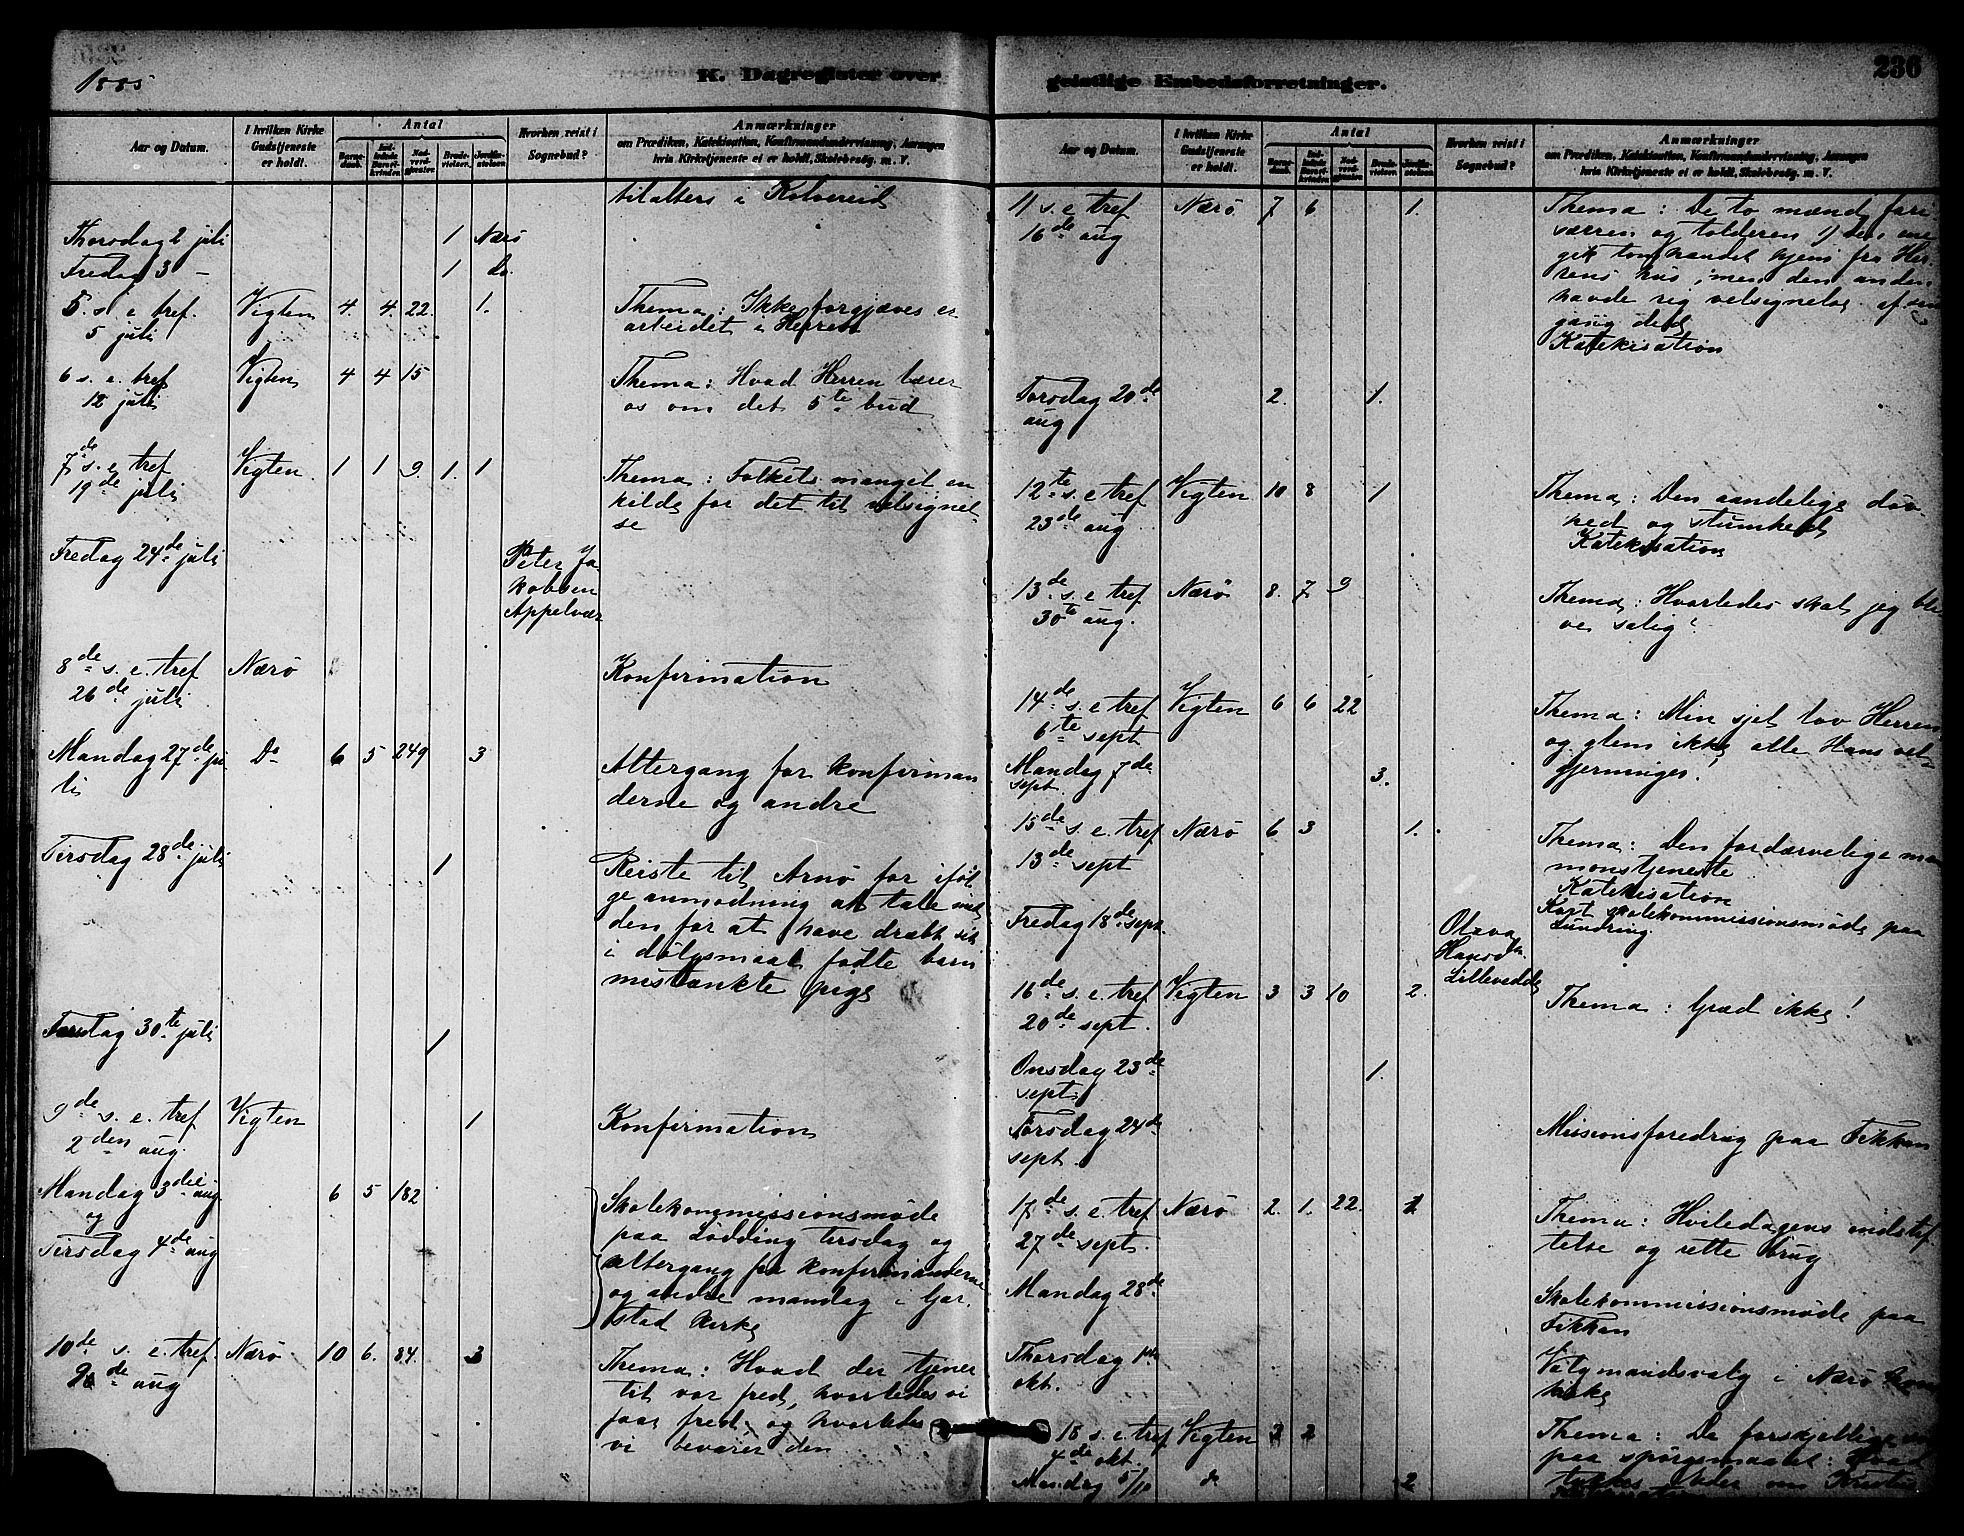 1885
K. Dagregister over
geistlige Embedsforretninger.
236
Aar og Datum.
I hvilken Kirke Gudstjeneste er holdt.
Antal
Barnedaab.
Indledede Barselkvinder.
Nadverdgjester.
Brudevielser.
Jordfæstelser.
Hvorhen reist i Sognebud?
Anmærkninger
om Prædiken, Katekisation, Konfirmandundervisning, Aarsagen
hvis Kirketjeneste ei er holdt, Skolebesøg. m. V.
tilalters i Kolvereid
Thorsdag 2 juli 1 Nærø
Fredag 3 – 1 Do.
5. s. e. tref. Vigten 4. 4. 22. 1. Thema: Ikke forgjæves er
5 juli arbeidet i Herren
6 s. e. tref Vigten 4 4 15 Thema: Hvad Herren lærer
12 juli os om det 5te bud
7de s. e. tref Vigten 1 1 9. 1. 1 Thema: Folkets mangel en
19de juli kilde for det til velsignel-
se
Fredag 24de juli Peter Ja
kobsen
Appelvær
8de s. e. tref Nærø Konfirmation
26de juli
Mandag 27de ju Do 6 5 249 3 Altergang for konfirman
li derne og andre
Tirsdag 28de juli 1 Reiste til Arnø for iføl
ge anmodning at tale med
den for at have dræbt sit
i dølgsmaal fødte barn
mistænkte pige
Torsdag 30te juli 1
9de s. e. tref Vigten 1 Konfirmation
2den aug.
Mandag 3die aug 6 5 182 Skolekommissionsmøde
og paa Lødding tirsdag og
Tirsdag 4de aug altergang for konfirmanderne
og andre mandag i Gar
stad kirke
10de s. e. tref. Nærø 10 6. 84. 3 Thema: Hvad der tjener
9de aug til vor fred, hvorledes vi
faar fred, og hvorledes
vi bevarer den
Aar og Datum.
I hvilken Kirke Gudstjeneste er holdt.
Antal
Barnedaab.
Indledede Barselkvinder.
Nadverdgjester.
Brudevielser.
Jordfæstelser.
Hvorhen reist i Sognebud?
Anmærkninger
om Prædiken, Katekisation, Konfirmandundervisning, Aarsagen
hvis Kirketjeneste ei er holdt, Skolebesøg. m. V.
11 s. e. tref Nærø 7. 6 1. Thema: De to mænd, fari-
16de aug sæeren og tolderen 1) den ene
gik tomhændet hjem fra Her
rens hus, men den anden
havde sig velsignelse
gang
Katekisation
Torsdag 20de 2. 1.
aug
12te s. e. tref Vigten 10 8 1 Thema: Den aandelige døv
23de aug. hed og stumhed
Katekisation
13de s. e. tref Nærø 8. 7. 9 Thema: Hvorledes skal jeg bli
30te aug. ve salig?
14de s. e. tref Vigten 6 6 22 Thema: Min sjel lov Herren
6te sept og glem ikke alle Hans vel-
gjerninger!
Mandag 7de 3.
sept.
15de s. e. tref Nærø 6 3 1. Thema: Den fordærvelige mam
13de sept monstjeneste
Katekisation
Kort skolekommissionsmøde paa
Lundring
Fredag 18de sept. Olava
Hansd.
Lillevedde
16de s. e. tref Vigten 3 3 10 2. Thema: Græd ikke!
20de sept.
Onsdag 23de 1.
sept
Torsdag 24de Missionsforedrag paa Fikkan
sept.
17de s. e. tref Nærø 2. 1. 22. 1 Thema: Hviledagens indstif
27de sept. telse og rette brug
Mandag 28de Skolekommissionsmøde paa
Fikkan
Thorsdag 1ste Valgmandsvalg i Nærø
okt. kirke
18 s. e. tref Vigten 3 2 Thema: De forskjellige
4de okt. paa spørgsmaalet: Hvad
Mandag 5/10 d 2 om Kristus